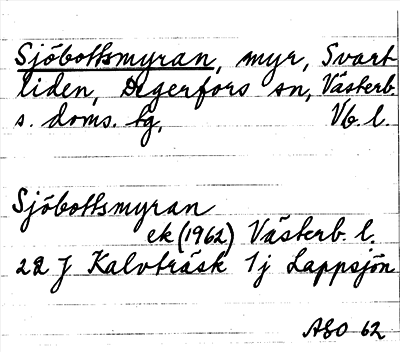 Sjöbottsmyran, myr, Svart-
liden, Degerfors sn, Västerb.
s. doms. tg, Vb. l.
Sjöbottsmyran
ek (1962) Västerb. l.
22 J Kalvträsk 1j Lappsjön
ASO 62